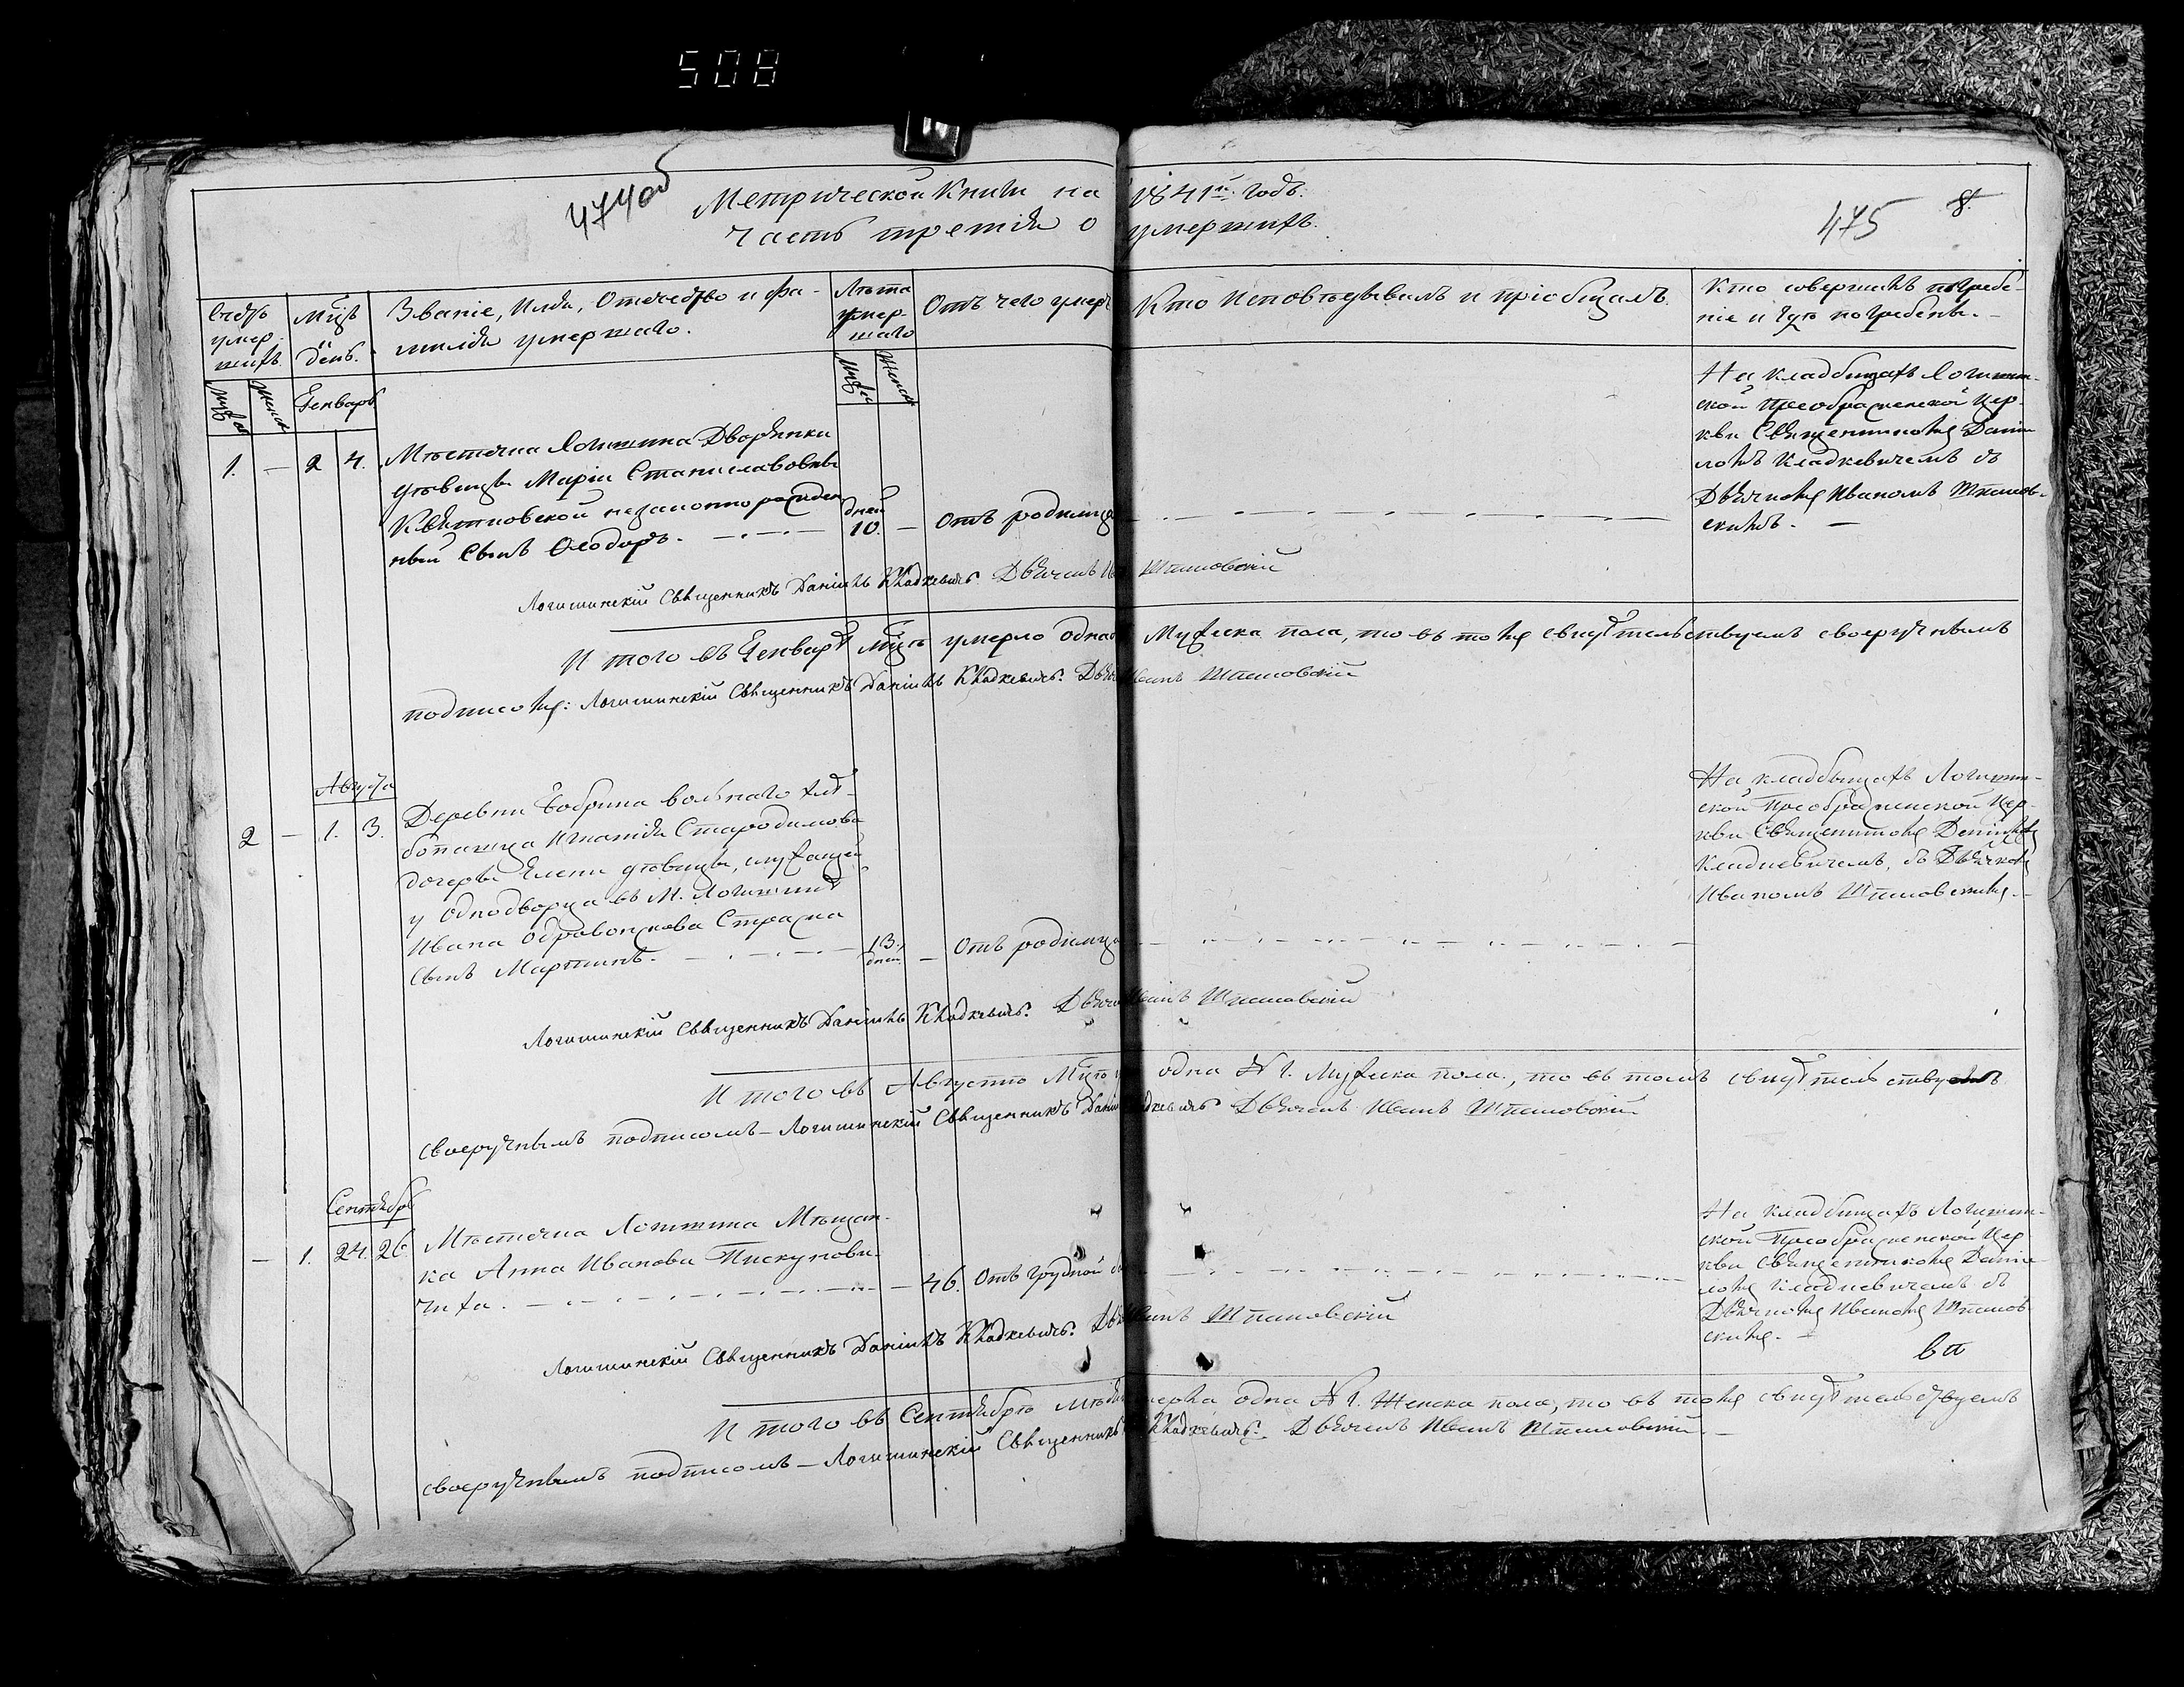 508
474об
475
8.
Метрической Книги на 1841й годъ.
Часть третія о умершихъ.
Счетъ умер- шихъ.
Мцъ день.
Званіе, Имя, Отечество и фа-
милія умершаго.
Лѣта умер- шаго
Отъ чего умеръ
Кто Исповѣдывалъ и пріобщалъ.
Кто совершилъ погребе-
ніе и гдѣ погребены.
Генварь
1. — 2 4.
Мѣстечка Логишина Дворянки
дѣвицы Маріи Станиславовны
незаконно рожден
ный Сынъ Ѳеодоръ.
дней
10. —
Отъ родимца
На кладбищахъ Логишин-
ской Преображенской Цер-
кви Священникомъ Дани
ломъ Кладкевичемъ съ
Дьячкомъ Иваномъ Шпаков-
скимъ. —
Логишинскій Священникъ Даніилъ Кладкевичъ. Дьячекъ Шпаковскій
И того въ Генварѣ мцѣ умерло одна Мужеска пола, то въ томъ свидѣтельствуемъ своеручнымъ
подписомъ: Логишинскій Священникъ Даніилъ Кладкевичъ. Иванъ Шпаковскій
Августа
2 — 1. 3.
Деревни вольнаго хлѣ-
бопашца Игнатія Стародимова
дочеры Елены дѣвицы, служащей
у Однодворца въ М. Логишинѣ
Ивана Стража
сынъ Мартинъ.
13. дней —
Отъ родимца
На кладбищахъ Логишин-
ской Преображенской Цер-
кви Священникомъ Даніиломъ
Кладкевичемъ, съ Дьячкомъ
Иваномъ Шпаковскимъ.
Логишинскій Священникъ Даніилъ Кладкевичъ. Иванъ Шпаковскій
И того въ Августѣ Мцѣ одна N 1. Мужеска пола, то въ томъ свидѣтельствуемъ
своеручнымъ подписомъ — Логишинскій Священникъ Дьячекъ Иванъ Шпаковскій
Сентябрь
— 1. 24. 26
Мѣстечка Логишина Мѣщан-
ка Анна Иванова Пискунови-
чиха.
46.
Отъ грудной
На кладбищахъ Логишин-
ской Преображенской Цер
кви Священникомъ Даніи
ломъ Кладкевичемъ съ
Дьячкомъ Иваномъ Шпаков
скимъ. —
Логишинскій Священникъ Даніилъ Кладкевичъ. Иванъ Шпаковскій
И того въ Сентябрѣ одна N 1. Женска пола, то въ томъ свидѣтельствуемъ
своеручнымъ подписомъ — Логишинскій Священникъ Кладкевичъ. Дьячекъ Иванъ Шпаковскій.